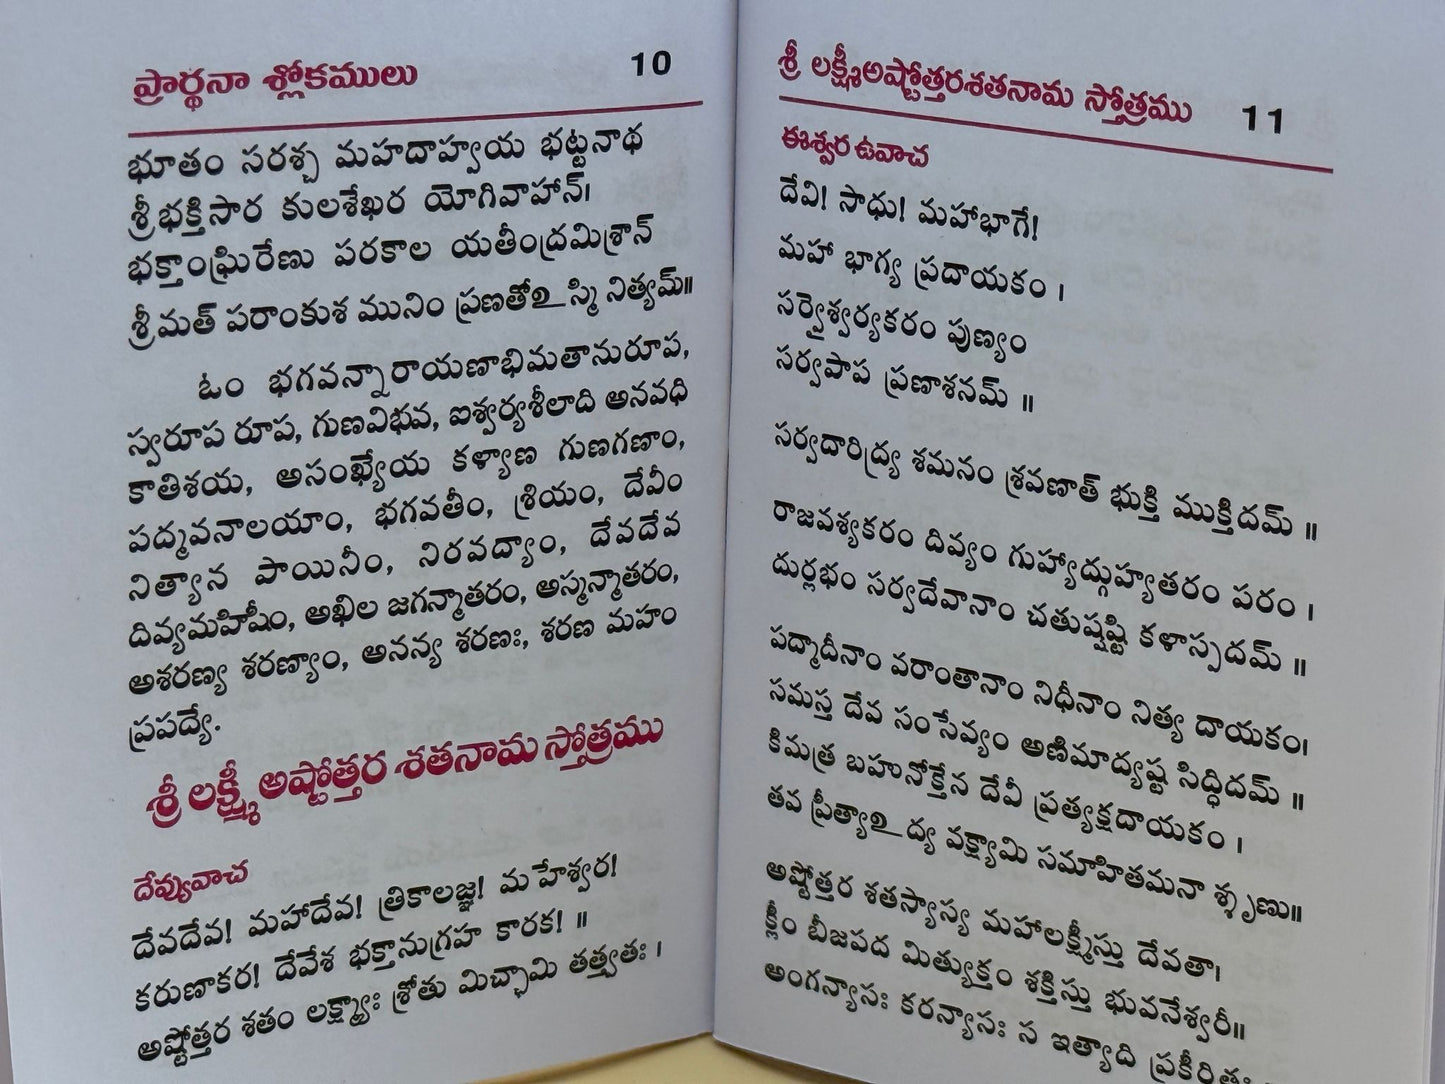 ప్రార్థనా శ్లోకములు 10
భూతం సరశ్చ మహదాహ్వయ భట్టనాథ
శ్రీభక్తిసార కులశేఖర యోగివాహాన్।
భక్తాంఘ్రిరేణు పరకాల యతీంద్రమిశ్రాన్
శ్రీమత్ పరాంకుశ మునిం ప్రణతోఽస్మి నిత్యమ్॥
ఓం భగవన్నారాయణాభిమతానురూప,
స్వరూప రూప, గుణవిభవ, ఐశ్వర్యశీలాది అనవధి
కాతిశయ, అసంఖ్యేయ కళ్యాణ గుణగణాం,
పద్మవనాలయాం, భగవతీం, శ్రియం, దేవీం
నిత్యాన పాయినీం, నిరవద్యాం, దేవదేవ
దివ్యమహిషీం, అఖిల జగన్మాతరం, అస్మన్మాతరం,
అశరణ్య శరణ్యాం, అనన్య శరణః, శరణ మహం
ప్రపద్యే.
శ్రీ లక్ష్మీ అష్టోత్తర శతనామ స్తోత్రము
దేవ్యువాచ
దేవదేవ! మహాదేవ! త్రికాలజ్ఞ! మహేశ్వర!
కరుణాకర! దేవేశ భక్తానుగ్రహ కారక! ॥
అష్టోత్తర శతం లక్ష్మ్యాః శ్రోతు మిచ్ఛామి తత్త్వతః ।
శ్రీ లక్ష్మీఅష్టోత్తరశతనామ స్తోత్రము 11
ఈశ్వర ఉవాచ
దేవి! సాధు! మహాభాగే!
మహా భాగ్య ప్రదాయకం ।
సర్వైశ్వర్యకరం పుణ్యం
సర్వపాప ప్రణాశనమ్ ॥
సర్వదారిద్ర్య శమనం శ్రవణాత్ భుక్తి ముక్తిదమ్ ॥
రాజవశ్యకరం దివ్యం గుహ్యాద్గుహ్యతరం పరం ।
దుర్లభం సర్వదేవానాం చతుష్షష్టి కళాస్పదమ్ ॥
పద్మాదీనాం వరాంతానాం నిధీనాం నిత్య దాయకం।
సమస్త దేవ సంసేవ్యం అణిమాద్యష్ట సిద్ధిదమ్ ॥
కిమత్ర బహునోక్తేన దేవీ ప్రత్యక్షదాయకం ।
తవ ప్రీత్యాఽద్య వక్ష్యామి సమాహితమనా శ్శృణు॥
అష్టోత్తర శతస్యాస్య మహాలక్ష్మీస్తు దేవతా।
క్లీం బీజపద మిత్యుక్తం శక్తిస్తు భువనేశ్వరీ॥
అంగన్యాసః కరన్యాసః స ఇత్యాది ప్రకీర్తితః